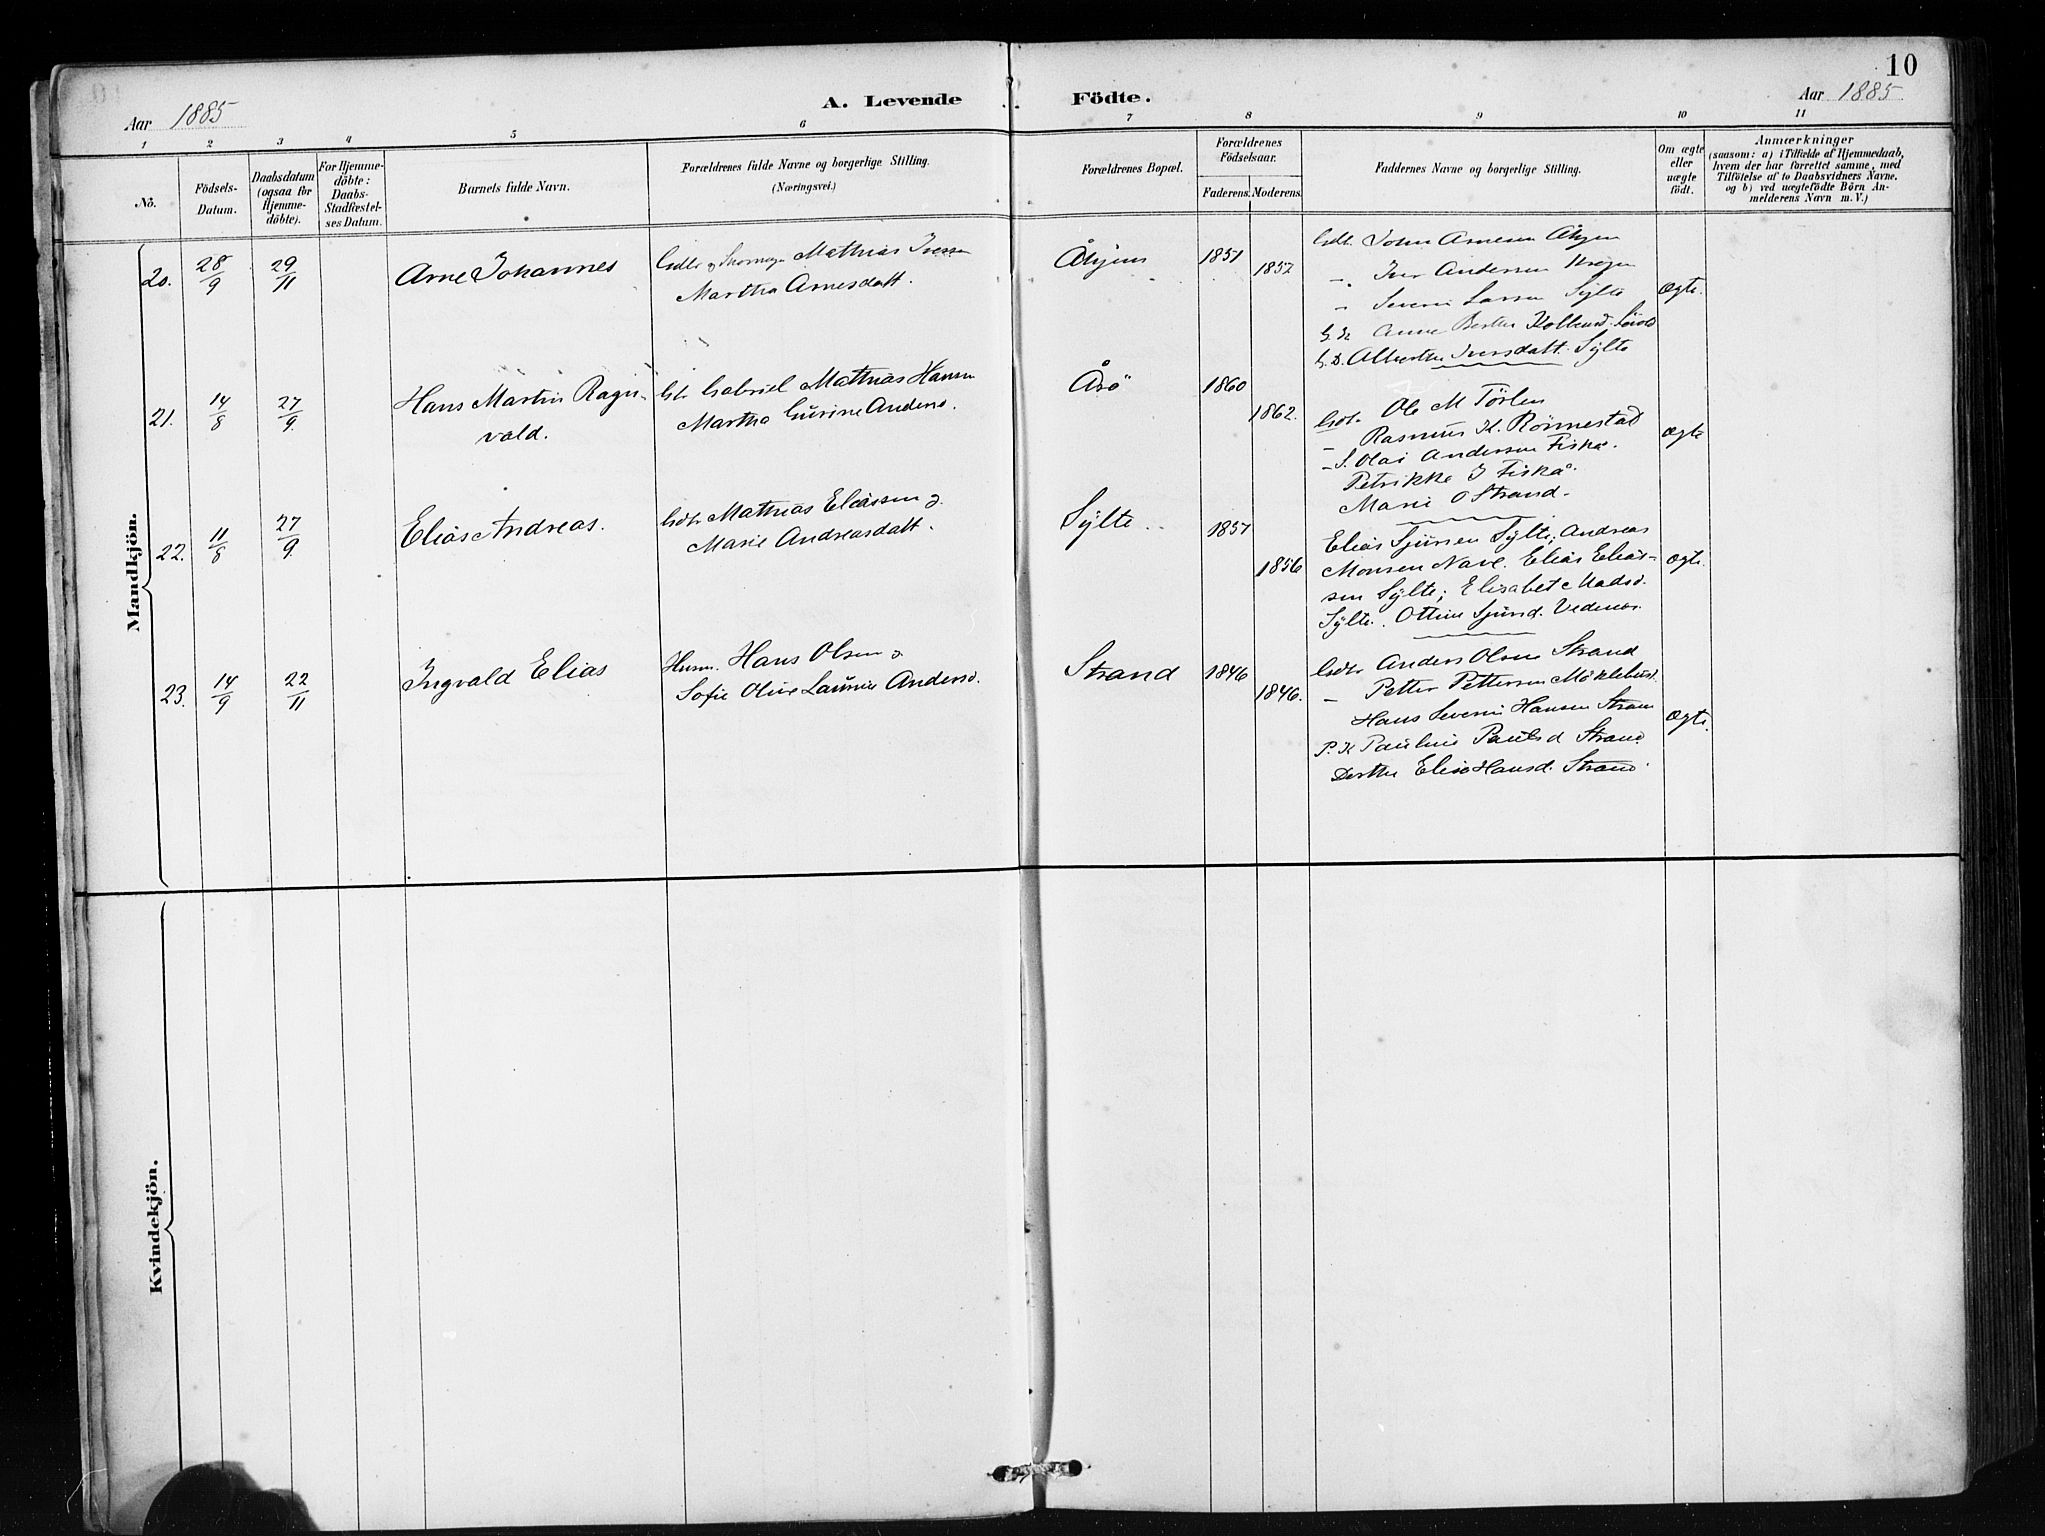 10
Aar 1885
A. Levende Födte.
Aar 1885
1 2 3 4 5 6 7 8 9 10 11
No.
Födsels-
Datum.
Daabsdatum
(ogsaa for
Hjemme-
döbte).
For Hjemme-
döbte:
Daabs-
Stadfæstel-
ses Datum.
Barnets fulde Navn.
Forældrenes fulde Navne og borgerlige Stilling.
(Næringsvei.)
Forældrenes Bopæl.
Forældrenes
Födselsaar.
Faderens. Moderens.
Faddernes Navne og borgerlige Stilling.
Om ægte
eller
uægte
födt.
Anmærkninger
(saasom: a) i Tilfælde af Hjemmedaab,
hvem der har forrettet samme, med
Tilföielse af to Daabsvidners Navne.
og b) ved uægtefödte Börn An-
melderens Navn m. V.)
Mandkjön.
20. 28/9 29/11 Arne Johannes
Mathias Iversen
Martha Arnesdatt.
1851
1857
John Arnesen
- Iver Andersen
- Severin Larsen Sylte
Anne Berthe
Iversdatt. Sylte
Ægte.
21. 14/8 27/9. Hans Martin Ragn-
vald.
Gabriel Mathias Hansen
Martha Gurine Anders.
Årö
1860
1862.
Gdbr. Ole M
- Rasmus K. Rönnestad
- S. Olai Andersen Fiskå.
Petrikke J Fiskå.
Marie O Strand.
Ægte
22. 11/8 27/9. Elias Andreas.
Gdbr Mathias Eliassen &
Marie Andreasdatt.
Sylte
1857
1856
Elias Sjursen Sylte; Andreas
Monsen Nave. Elias Elias-
sen Sylte; Elisabet Madsd.
Sylte. Ottine Sjursd.
Ægte.
23. 14/9 22/11 Ingvald Elias
Husm. Hans Olsen &
Sofie Oline Andersd.
Strand
1846
1846.
Gdbr Anders Olsen Strand
- Petter Pettersen Möklebust.
Hans Severin Hansen Strand
P. K Pauline Paulsd Strand
Berthe Elise Hansd. Strand.
Ægte.
Kvindekjön.